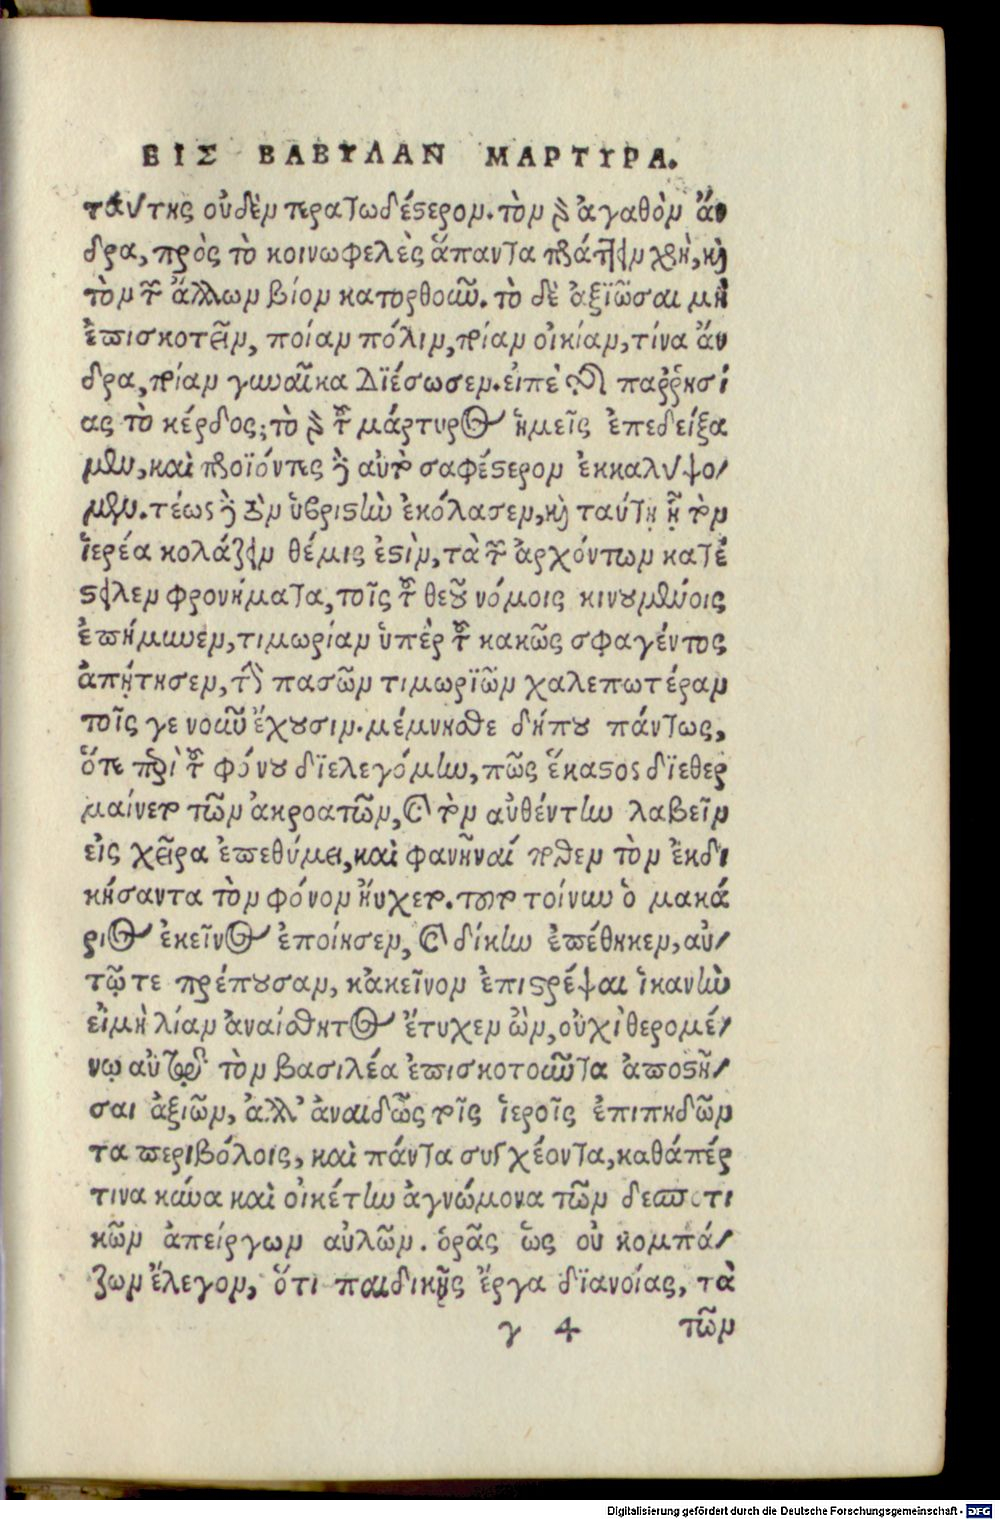 ΕΙΣ ΒΑΒΥΛΑΝ ΜΑΡΤΥΡΑ.
ταύτης οὐδὲν πρᾳωδέστερον. τὸν δὲ ἀγαθὸν ἄν
δρα, πρὸς τὸ κοινωφελὲς ἅπαντα πράττειν χρὴ, καὶ
τὸν τῶν ἄλλων βίον κατορθοῦν. τὸ δὲ ἀξιῶσαι μὴ
ἐπισκοτεῖν, ποίαν πόλιν, ποίαν οἰκίαν, τίνα ἄν
δρα, ποίαν γυναῖκα διέσωσεν. εἰπὲ τῆς παρρησί
ας τὸ κέρδος; τὸ δὲ τοῦ μάρτυρος ἡμεῖς ἐπεδείξα
μεν, καὶ προϊόντες δὲ αὐτὸ σαφέστερον ἐκκαλύψο/
μεν. τέως δὲ τὸν ὑβριστὴν ἐκόλασεν, καὶ ταύτῃ ᾗ τὸν
ἱερέα κολάζειν θέμις ἐστὶν, τὰ τῶν ἀρχόντων κατέ
στειλεν φρονήματα, τοῖς τοῦ θεοῦ νόμοις κινουμένοις
ἐπήμυνεν, τιμωρίαν ὑπὲρ τοῦ κακῶς σφαγέντος
ἀπῄτησεν, τὴν πασῶν τιμωριῶν χαλεπωτέραν
τοῖς γε νοῦν ἔχουσιν. μέμνησθε δήπου πάντως,
ὅτε περὶ τοῦ φόνου διελεγόμην, πῶς ἕκαστος διεθερ
μαίνετο τῶν ἀκροατῶν, καὶ τὸν αὐθέντην λαβεῖν
εἰς χεῖρα ἐπεθύμει, καὶ φανῆναί ποθεν τὸν ἐκδι
κήσαντα τὸν φόνον ηὔχετο. τοῦτο τοίνυν ὁ μακά
ριος ἐκεῖνος ἐποίησεν, καὶ δίκην ἐπέθηκεν, αὐ/
τῷ τε πρέπουσαν, κἀκεῖνον ἐπιστρέψαι ἱκανὴν
εἰ μὴ λίαν ἀναίσθητος ἔτυχεν ὢν, οὐχὶ θερομέ/
νῳ αὐτῷ τὸν βασιλέα ἐπισκοτοῦντα ἀποστῆ/
σαι ἀξιῶν, ἀλλ' ἀναιδῶς τοῖς ἱεροῖς ἐπιπηδῶν
τα περιβόλοις, καὶ πάντα συγχέοντα, καθάπέρ
τινα κύνα καὶ οἰκέτην ἀγνώμονα τῶν δεσποτι
κῶν ἀπείργων αὐλῶν. ὁρᾷς ὡς οὐ κομπά/
ζων ἔλεγον, ὅτι παιδικῆς ἔργα διανοίας, τὰ
γ 4 τῶν
Digitalisierung gefördert durch die Deutsche Forschungsgemeinschaft - DFG